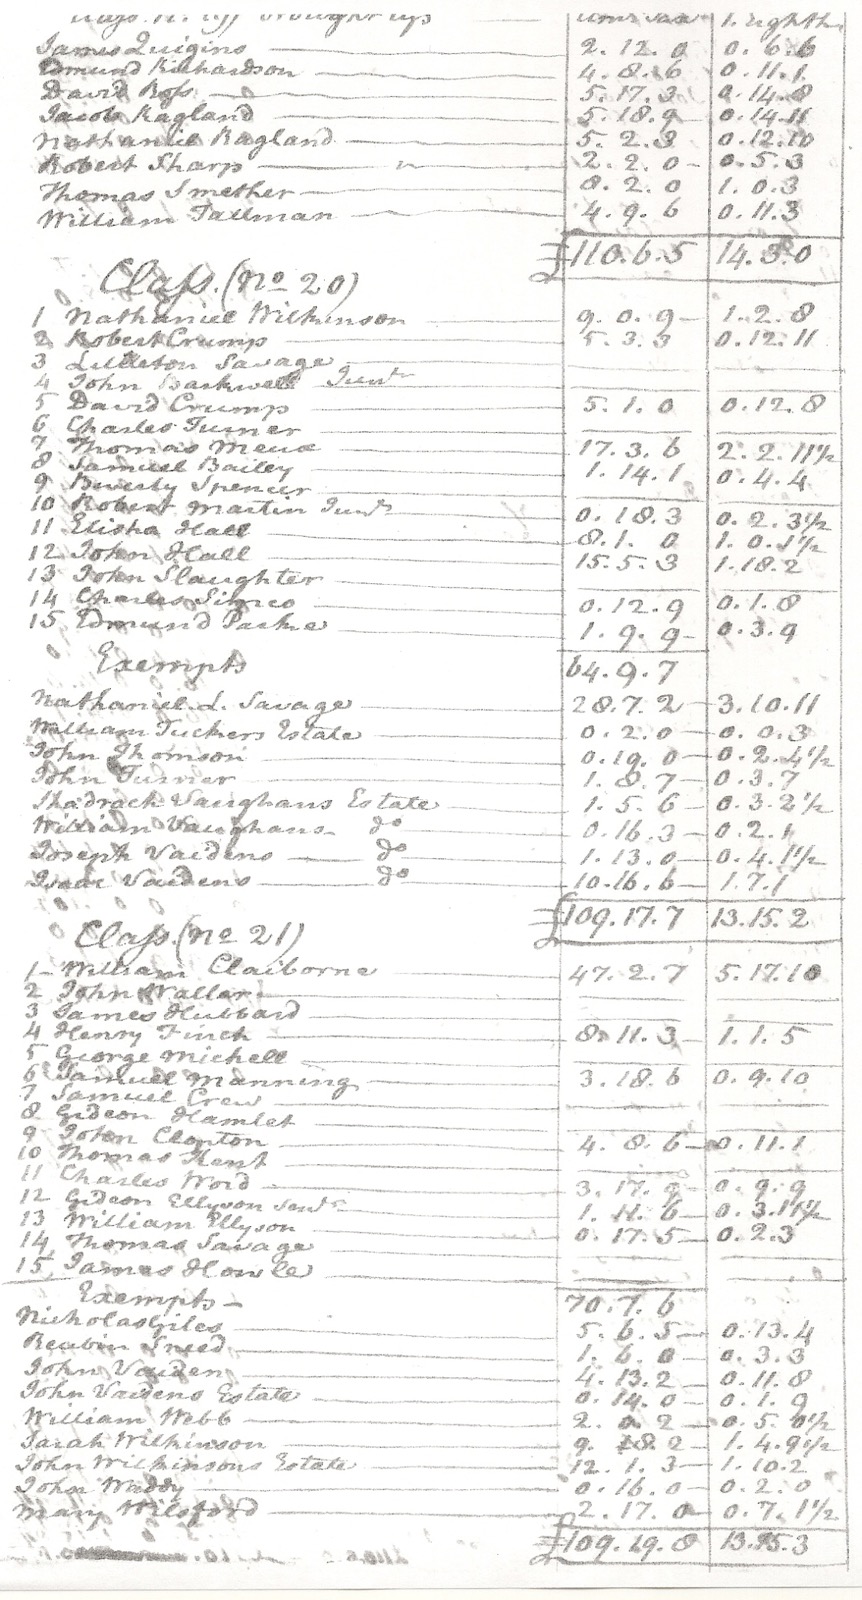 Class. No. 19 brought up 1. Eighth.
James Quigins 2. 12. 0 0. 6. 6
Edmund Richardson 4. 8. 6 0. 11. 1
David Ross 5. 17. 3 0. 14. 8
Jacob Ragland 5. 18. 9 0. 14. 11
Nathaniel Ragland 5. 2. 3 0. 12. 10
Robert Sharp 2. 2. 0 0. 5. 3
Thomas Smether 8. 2. 0 1. 0. 3
William Tallman 4. 9. 6 0. 11. 3
£110. 6. 5 14. 3. 0
Class. (No 20)
1 Nathaniel Wilkinson 9. 0. 9 1. 2. 8
2 Robert Crump 5. 3. 3 0. 12. 11
3 Littleton Savage
4 John Barkwell Junr
5 David Crump 5. 1. 0 0. 12. 8
6 Charles Turner
7 Thomas Meux 17. 3. 6 2. 2. 11½
8 Samuel Bailey 1. 14. 1 0. 4. 4
9 Beverly Spencer
10 Robert Martin Junr 0. 18. 3 0. 2. 3½
11 Elisha Hall 8. 1. 0 1. 0. 1½
12 John Hall 15. 5. 3 1. 18. 2
13 John Slaughter
14 Charles Simco 0. 12. 9 0. 1. 8
15 Edmund Parke 1. 9. 9 0. 3. 9
Exempts 64. 9. 7
Nathaniel L. Savage 28. 7. 2 3. 10. 11
William Tuckers Estate 0. 2. 0 0. 0. 3
John Thomson 0. 19. 0 0. 2. 4½
John Turner 1. 8. 7 0. 3. 7
Shadrach Vaughans Estate 1. 5. 6 0. 3. 2½
William Vaughans do 0. 16. 3 0. 2. 1
Joseph Vaidens do 1. 13. 0 0. 4. 1½
Isaac Vaidens do 10. 16. 6 1. 7. 1
£109. 17. 7 13. 15. 2
Class. (No 21)
1 William Claiborne 47. 2. 7 5. 17. 10
2 John Wallar
3 James Hubbard
4 Henry Finch 8. 11. 3 1. 1. 5
5 George Michell
6 Samuel Manning 3. 18. 6 0. 9. 10
7 Samuel Crew
8 Gideon Hamlet
9 John Clopton 4. 8. 6 0. 11. 1
10 Thomas Kent
11 Charles Word 3. 17. 9 0. 9. 9
12 Gideon Ellyson Senr 1. 11. 6 0. 3. 11½
13 William Ellyson 0. 17. 5 0. 2. 3
14 Thomas Savage
15 James Howle
Exempts 70. 7. 6
Nicholas Giles 5. 6. 5 0. 13. 4
Reubin Sneed 1. 6. 0 0. 3. 3
John Vaiden 4. 13. 2 0. 11. 8
John Vaidens Estate 0. 14. 0 0. 1. 9
William Webb 2. 0. 2 0. 5. 0½
Sarah Wilkinson 9. 18. 2 1. 4. 9½
John Wilkinsons Estate 12. 1. 3 1. 10. 2
John Waddy 0. 16. 0 0. 2. 0
Mary Wilsford 2. 17. 0 0. 7. 1½
£109. 19. 8 13. 15. 3